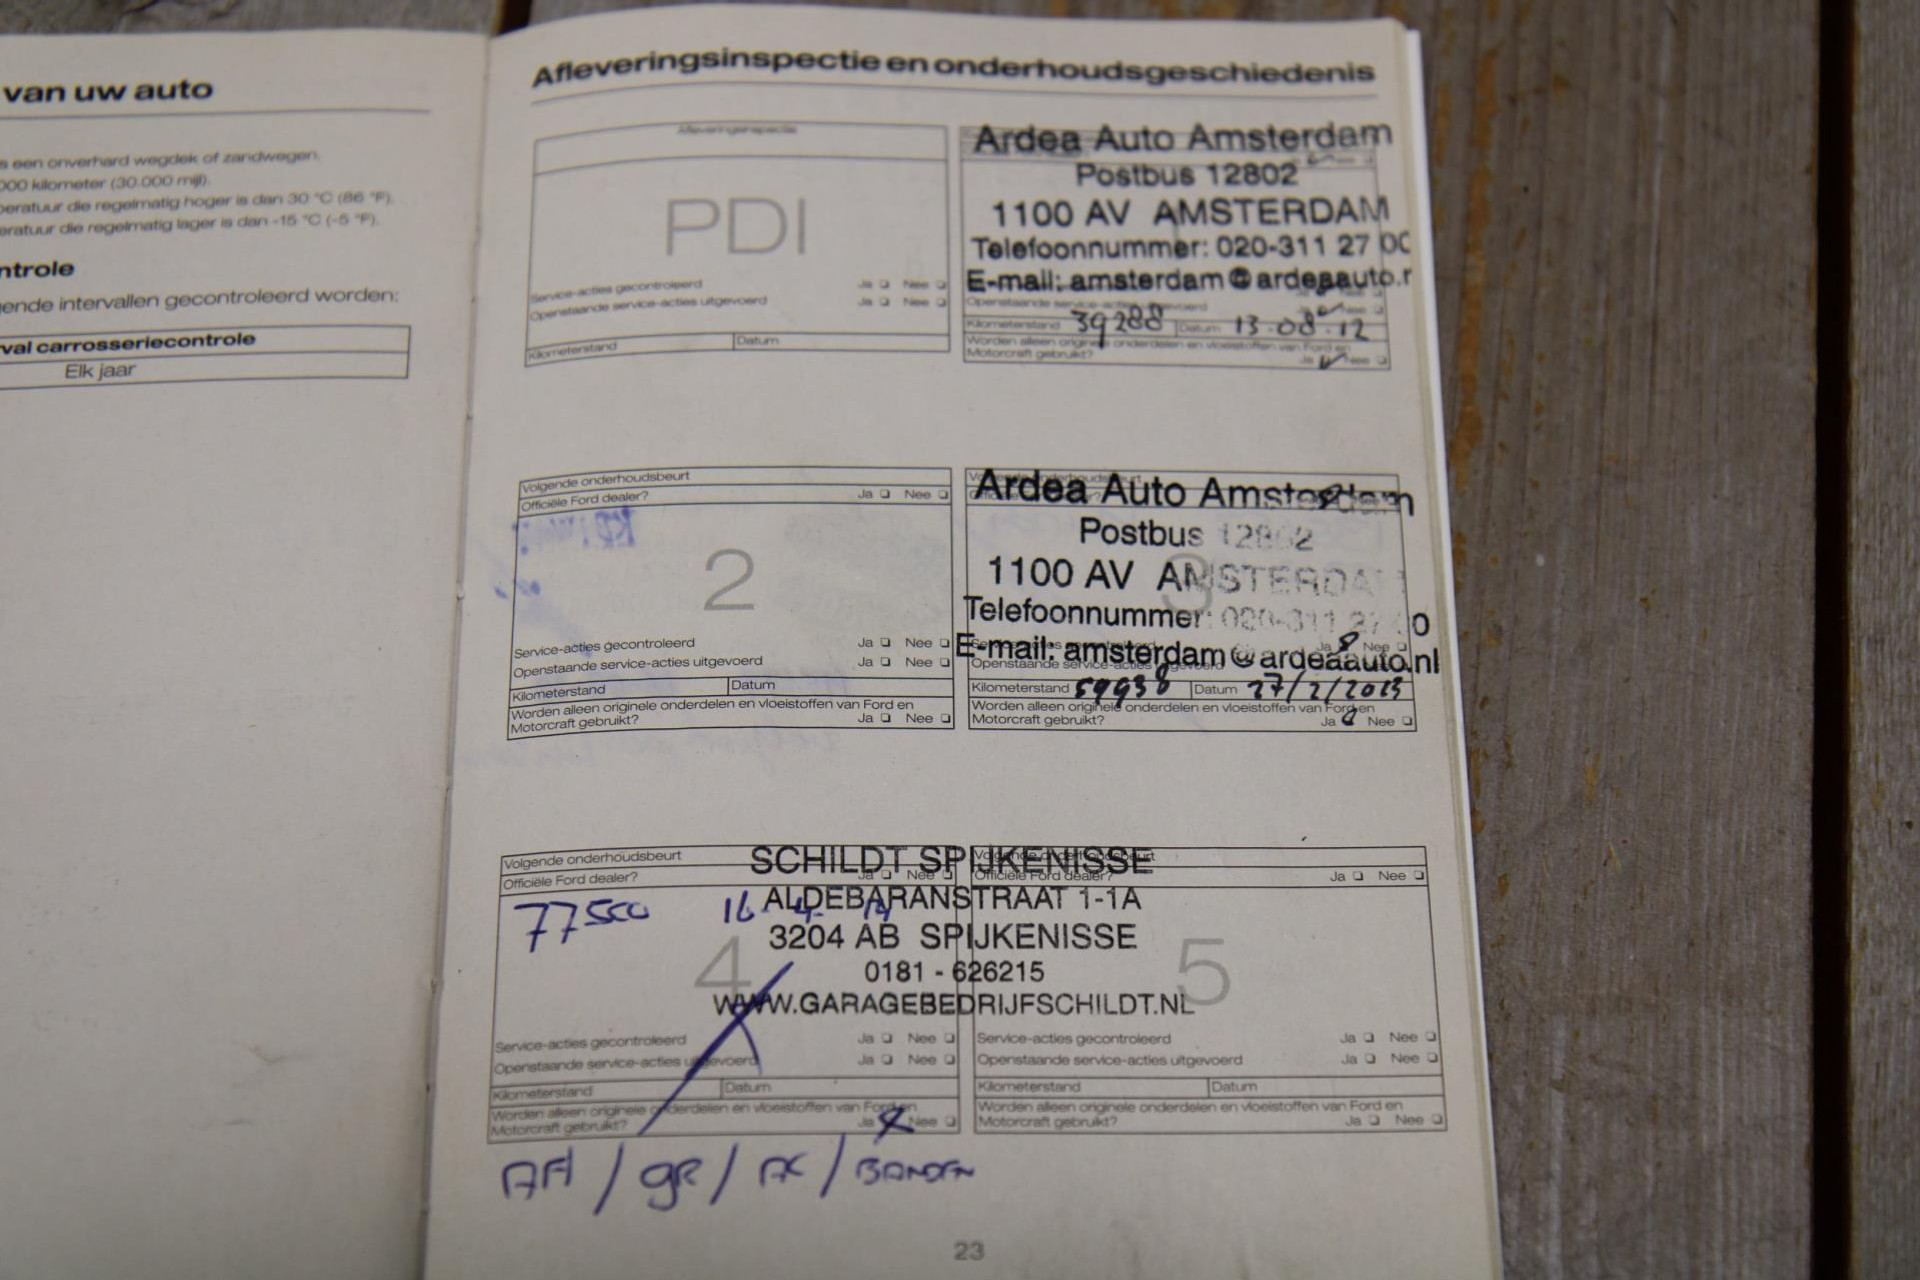 van uw auto
s een onverhard wegdek of zandwegen.
000 kilometer (30.000 mijl).
peratuur die regelmatig hoger is dan 30 °C (86 °F).
eratuur die regelmatig lager is dan -15 °C (-5 °F).
ntrole
gende intervallen gecontroleerd worden:
rval carrosseriecontrole
Elk jaar
Afleveringsinspectie en onderhoudsgeschiedenis
Afleveringsinspectie
PDI
Service-acties gecontroleerd Ja Nee
Openstaande service-acties uitgevoerd Ja Nee
Kilometerstand Datum
Ardea Auto Amsterdam
Postbus 12802
1100 AV AMSTERDAM
Telefoonnummer: 020-311 27 00
E-mail: amsterdam@ardeaauto.n
Openstaande service-acties uitgevoerd Nee
Kilometerstand 39288 Datum 13-08-12
Worden alleen originele onderdelen en vloeistoffen van Ford en
Motorcraft gebruikt? Ja Nee
Volgende onderhoudsbeurt
Officiële Ford dealer? Ja Nee
2
Service-acties gecontroleerd Ja Nee
Openstaande service-acties uitgevoerd Ja Nee
Kilometerstand Datum
Worden alleen originele onderdelen en vloeistoffen van Ford en
Motorcraft gebruikt? Ja Nee
Ardea Auto Amsterdam
Postbus 12802
1100 AV AMSTERDAM
3
Telefoonnummer: 020-311 27 00
Ja Nee
E-mail: amsterdam@ardeaauto.nl
Openstaande service-acties uitgevoerd
Kilometerstand 59938 Datum 27/2/2013
Worden alleen originele onderdelen en vloeistoffen van Ford en
Motorcraft gebruikt? Ja Nee
Volgende onderhoudsbeurt
Officiële Ford dealer? Ja Nee
77500 16-4-14
4
Service-acties gecontroleerd Ja Nee
Openstaande service-acties uitgevoerd Ja Nee
Kilometerstand Datum
Worden alleen originele onderdelen en vloeistoffen van Ford en
Motorcraft gebruikt? Ja Nee
SCHILDT SPIJKENISSE
ALDEBARANSTRAAT 1-1A
3204 AB SPIJKENISSE
0181 - 626215
WWW.GARAGEBEDRIJFSCHILDT.NL
Volgende onderhoudsbeurt
Officiële Ford dealer? Ja Nee
5
Service-acties gecontroleerd Ja Nee
Openstaande service-acties uitgevoerd Ja Nee
Kilometerstand Datum
Worden alleen originele onderdelen en vloeistoffen van Ford en
Motorcraft gebruikt? Ja Nee
/ GR / / BANDEN
23